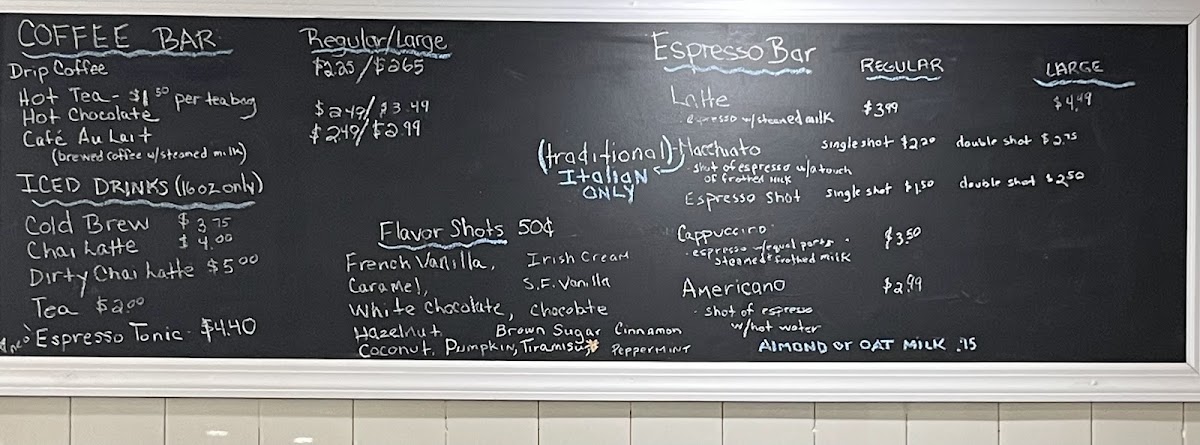 COFFEE BAR
Regular/Large
Drip Coffee $2.25/$2.65
Hot Tea - $1.50 per teabag
Hot Chocolate $2.49/$3.49
Café Au Lait $2.49/$2.99
(brewed coffee w/steamed milk)
ICED DRINKS (16 oz only)
Cold Brew $3.75
Chai Latte $4.00
Dirty Chai Latte $5.00
Tea $2.00
Espresso Tonic - $4.40
Flavor Shots 50¢
French Vanilla, Irish Cream
Caramel, S.F. Vanilla
White Chocolate, Chocolate
Hazelnut Brown Sugar Cinnamon
Coconut, Pumpkin, Tiramisu, PEPPERMINT
Espresso Bar REGULAR LARGE
Latte $3.99 $4.49
espresso w/steamed milk
(traditional) Macchiato single shot $2.20 double shot $2.75
ITALIAN ONLY
shot of espresso w/a touch
of frothed milk
Espresso Shot single shot $1.50 double shot $2.50
Cappuccino $3.50
espresso w/equal parts
steamed & frothed milk
Americano $2.99
shot of espresso
w/hot water
ALMOND or OAT MILK .75